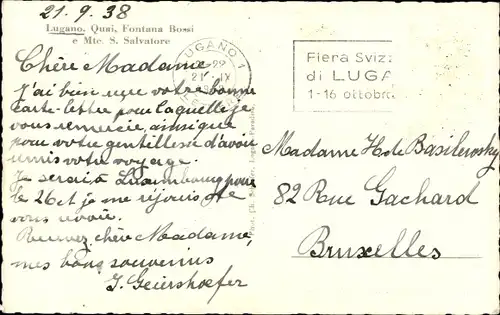 21.9.38
Lugano, Quai, Fontana Bossi
e Mte. S. Salvatore
Chère Madame
J'ai bien reçu votre bonne
carte-letter pour laquelle je
vous remercie, ainsi que
pour votre gentillesse d'avoir
remis votre voyage.
Je serai à Luxembourg pour
le 26 et je me réjouis de
vous revoir.
Recevez, chère Madame,
mes bons souvenirs
J. Geiershoefer
LUGANO 1
21. IX
Fiera Sviz
di LUGA
1-16 ottobre
Madame H. de Basilewsky
82 Rue Gachard
Bruxelles